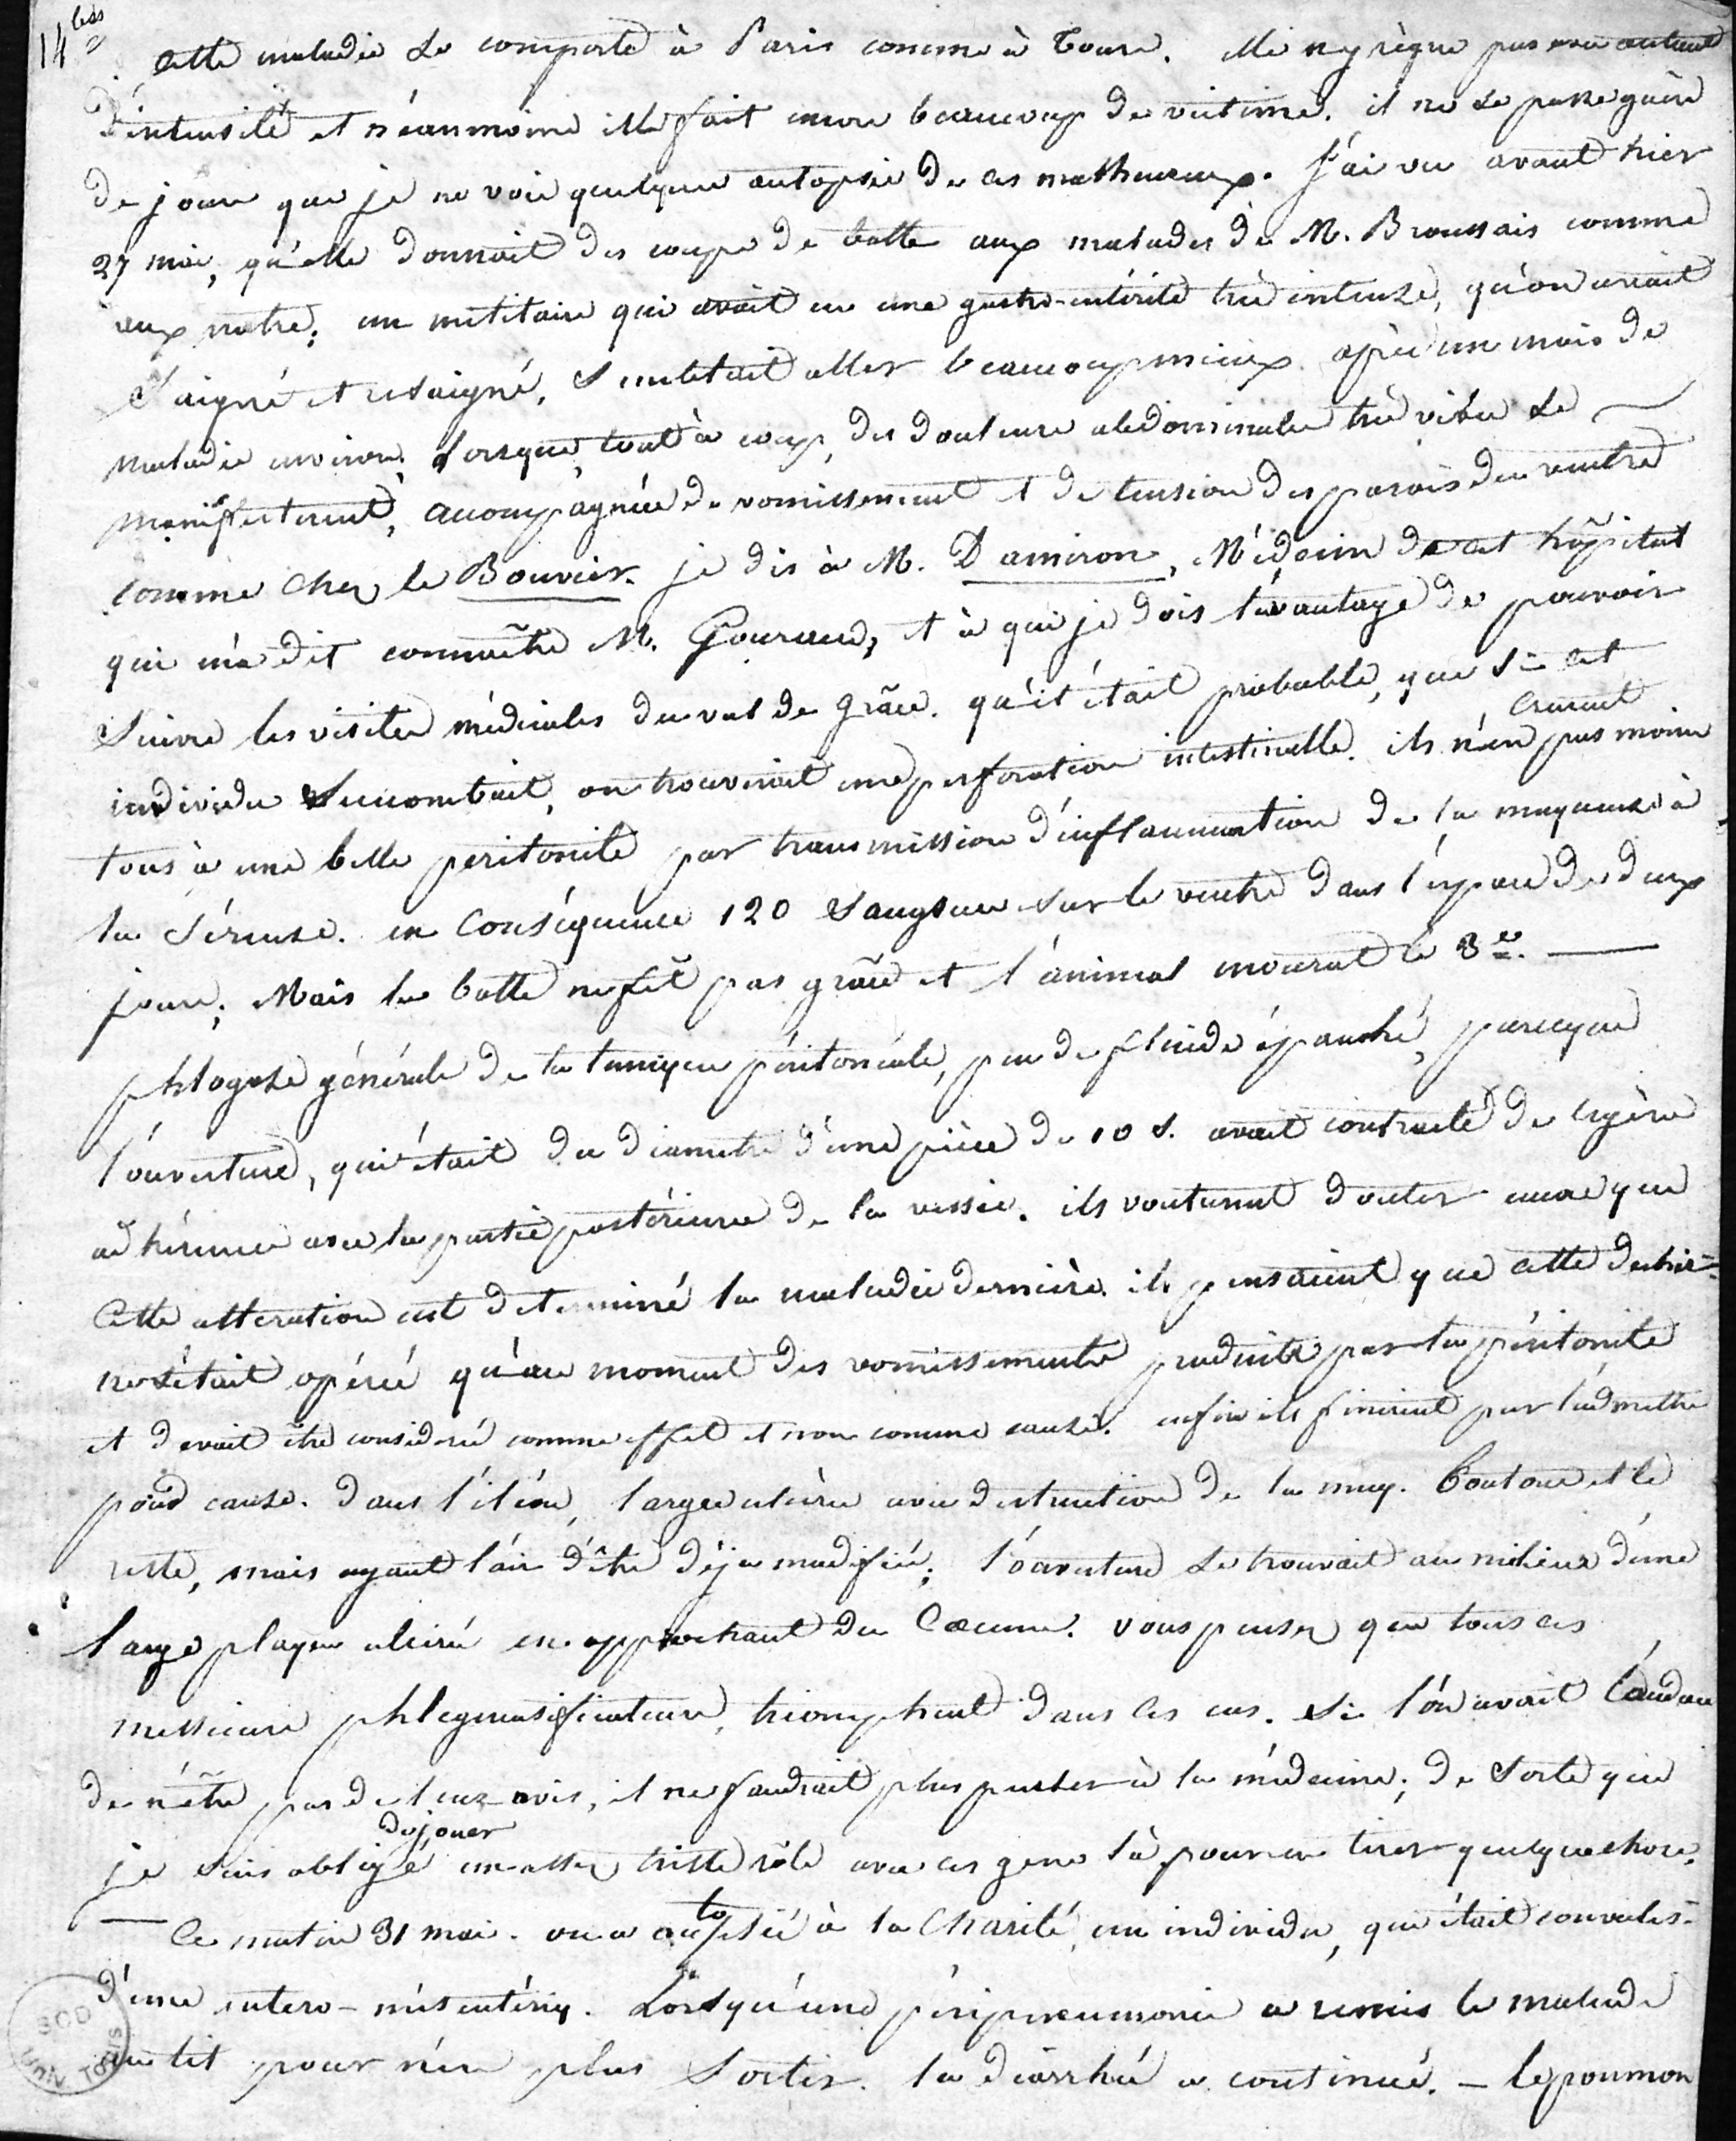 14 bis
Cette maladie se comporte à Paris comme à Tours. Elle n'y règne pas avec autant
d'intensité et néanmoins elle fait encore beaucoup de victimes. il ne se passe guère
de jours que je ne voie quelque autopsie de ces malheureux. J'ai vu avant hier
27 mai, qu'elle donnait des coups de batte aux malades de M. Broussais comme
aux notres; un militaire qui avait eu une gastro-entérite très intense, qu'on avait
Saigné et resaigné, Semblait aller beaucoup mieux après un mois de
maladie environ, lorsque tout à coup, des douleurs abdominales très vives se
manifestèrent, accompagnées de vomissement et de tension des parois du ventre
comme chez le Bouvier. je dis à M. Damiron, Médecin de cet hôpital
qui m'a dit connaître M. Gouraud, et à qui je dois l'avantage de pouvoir
Suivre les visites médicales du val de grâce. qu'il était probable, que si cet
individu Succombait, on trouverait une perforation intestinelle. ils n'en crurent pas moins
tous à une belle peritonite par transmission d'inflammation de la muqueuse à
la Séreuse. en Conséquence 120 Sangsues sur le ventre dans l'espace de deux
jours; Mais la batte ne fit pas grâce et l'animal mourut le 3e.
phlogose générale de la tunique péritonéale, peu de fluide épanché, parceque
l'ouverture, qui était du diametre d'une pièce de 10 s. avait contracté de légères
adhérences avec la partie postérieure de la vessie. ils voulurent douter encore que
Cette altération eut determiné la maladie dernière. ils pensaient que cette dechir=
ne s'était opérée qu'au moment des vomissements produits par la péritonite
et devait être considérée comme effet et non comme cause. enfin ils finirent par l'admettre
pour cause. dans l'iléon, larges ulcères avec destruction de la muq. boutons et le
reste, mais ayant l'air d'être déja modifiés; l'ouverture se trouvait au milieu d'une
large plaque ulcérée en approchant du Cœcum. vous pensez que tous ces
messieurs phlegmasificateurs, triomphent dans ces cas. Si l'on avait l'audace
de n'être pas de leur avis, il ne faudrait plus penser à la médecine; de Sorte que
je Suis obligé de jouer un assez triste rôle avec ces gens là pour en tirer quelque chose.
Ce matin 31 mai. on a autopsié à la Charité, un individu, qui était convales-
d'une entero-mésentériq. Lorsqu'une péripneumonie a remis le malade
au lit pour n'en plus Sortir. la diarrhée a continué. – le poumon
SCD
UNIV TOURS